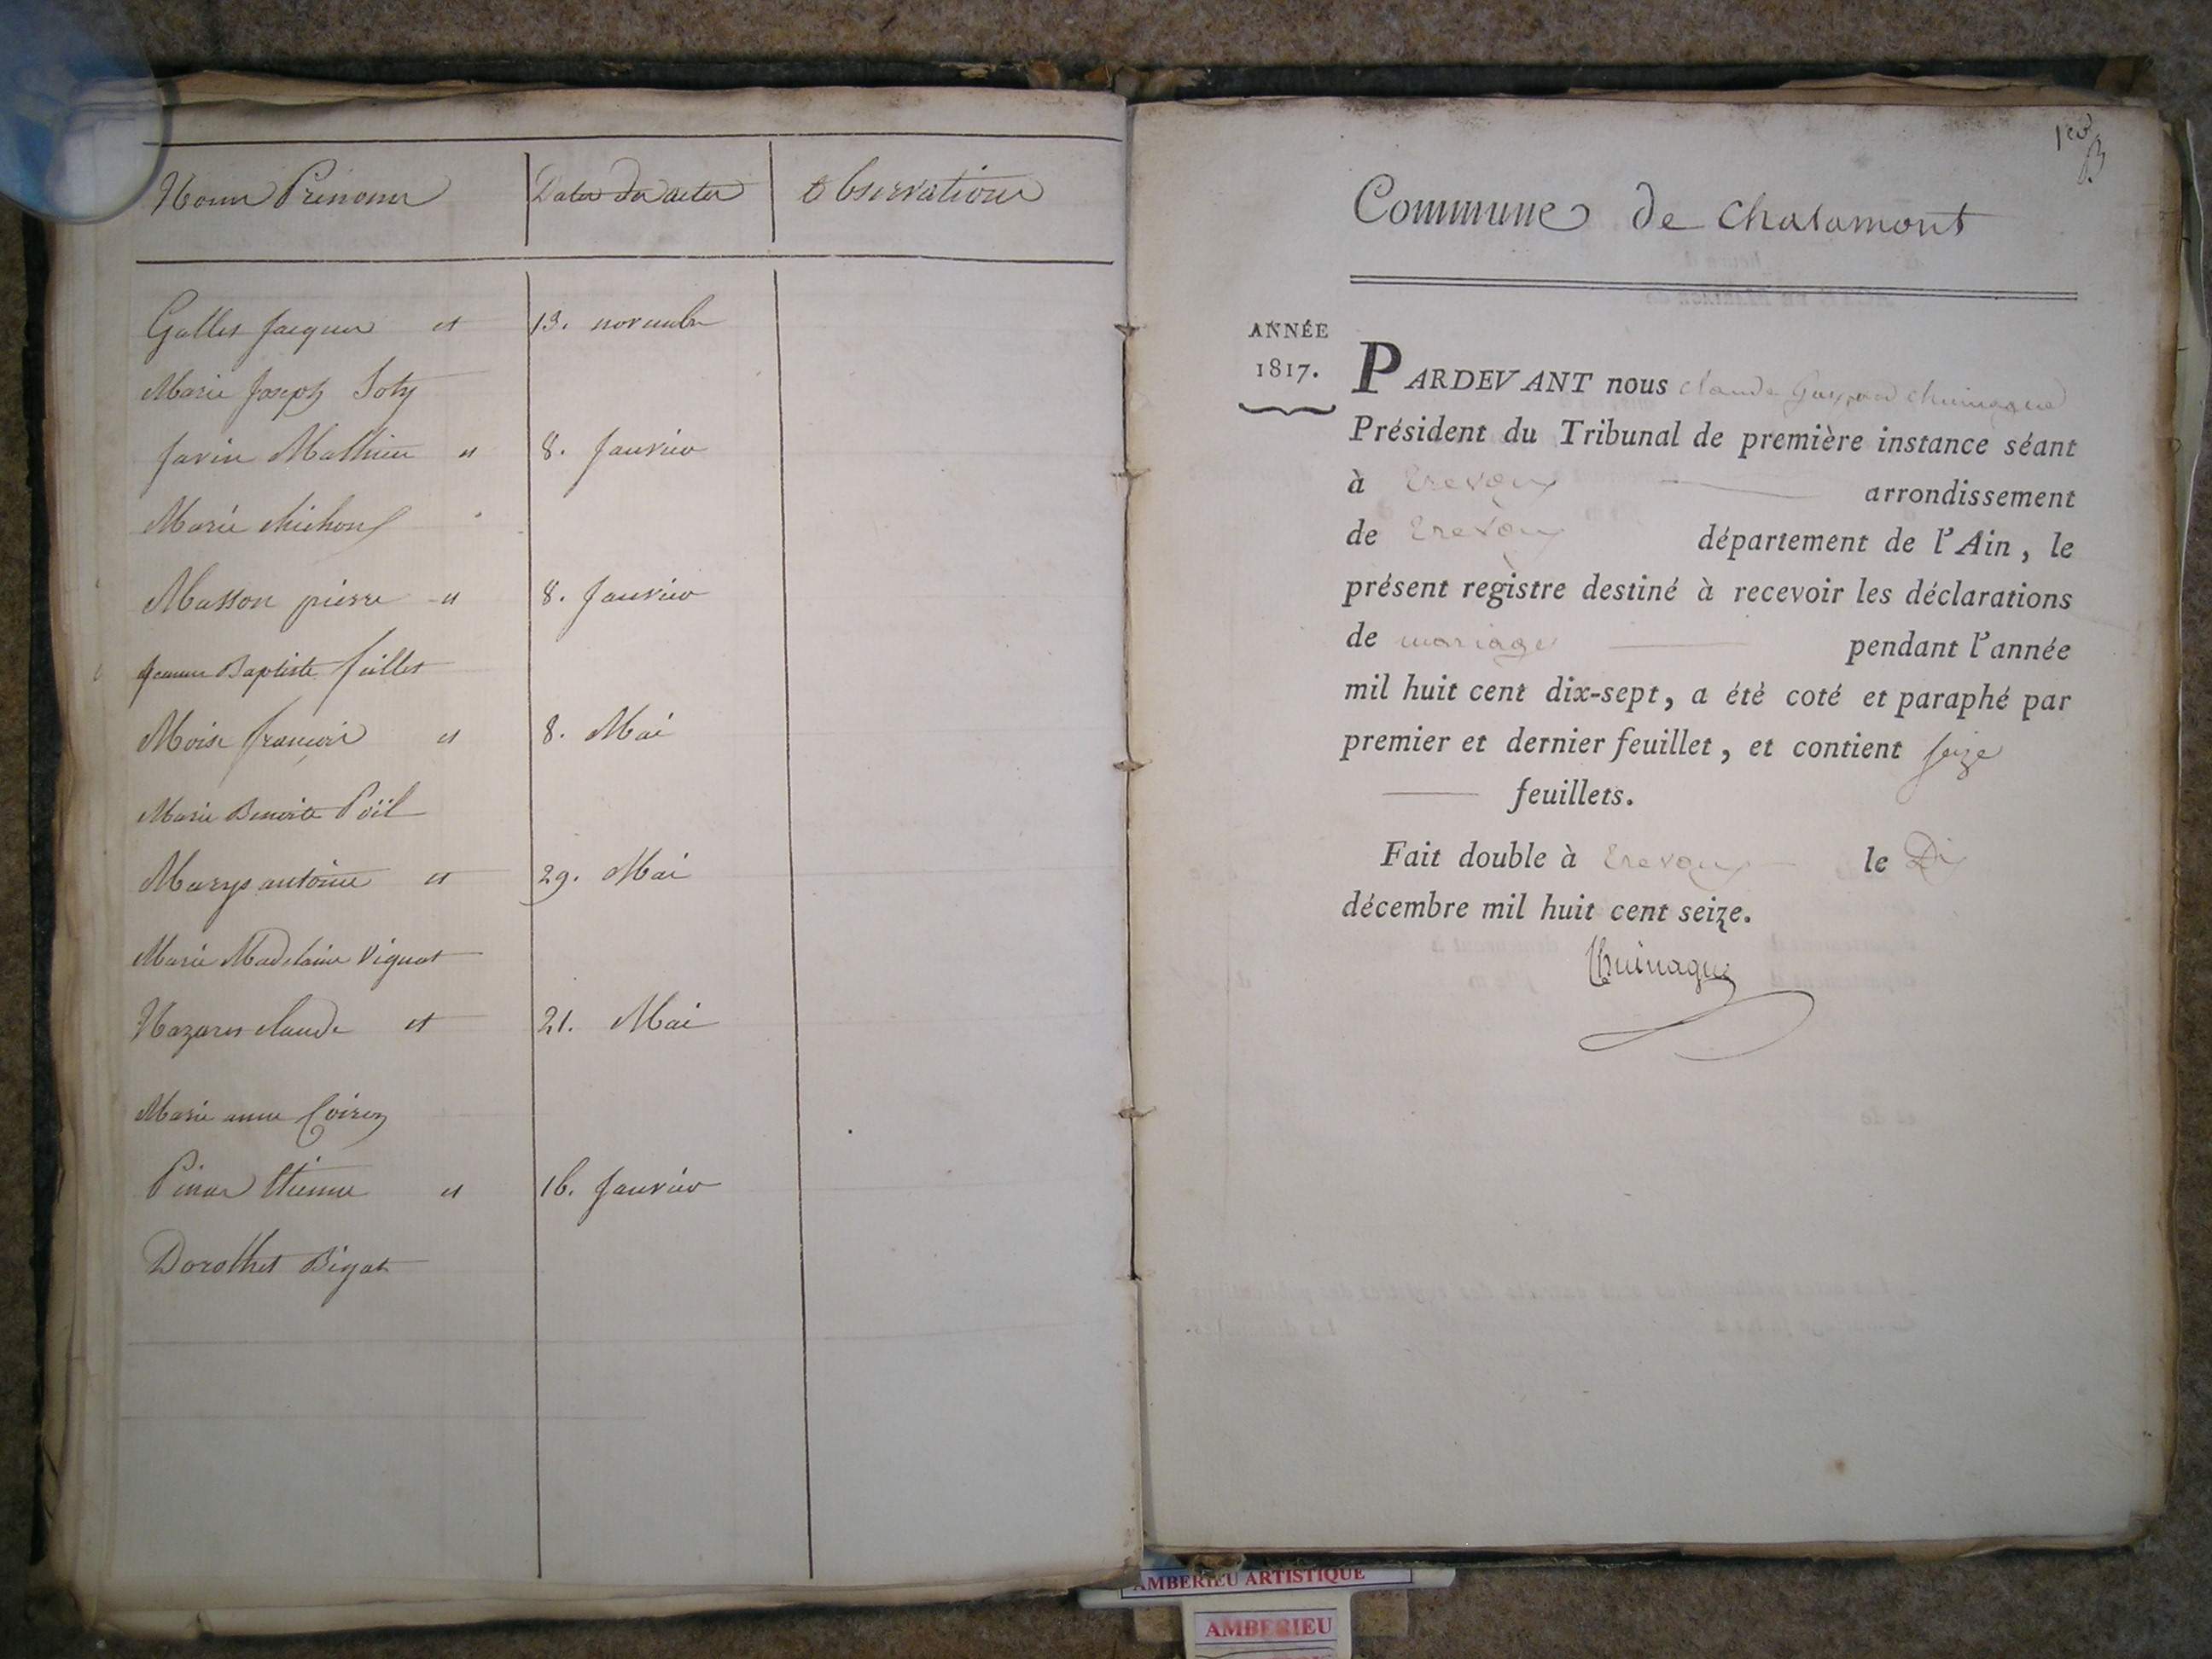 Noms Prenoms Dates des actes Observations
Galles Jacques et 13. novembre
Marie Joseph Soty
Javin Mathieu et 8. Janvier
Marie Michon
Masson pierre et 8. Janvier
Jeanne Baptiste Juillet
Moise françois et 8. Mai
Marie Benoite Poïl
Marys antoine et 29. Mai
Marie Madelaine Vignat
Nazares claude et 21. Mai
Marie anne Coiron
Pinar Etienne et 16. Janvier
Dorothet Bigot
1er
Commune de Chalamont
ANNÉE
1817.
PARDEVANT nous claude Gaspard
Président du Tribunal de première instance séant
à Trevoux arrondissement
de Trevoux département de l'Ain, le
présent registre destiné à recevoir les déclarations
de mariages pendant l'année
mil huit cent dix-sept, a été coté et paraphé par
premier et dernier feuillet, et contient seize
feuillets.
Fait double à Trevoux le Dix
décembre mil huit cent seize.
AMBERIEU ARTISTIQUE
AMBERIEU